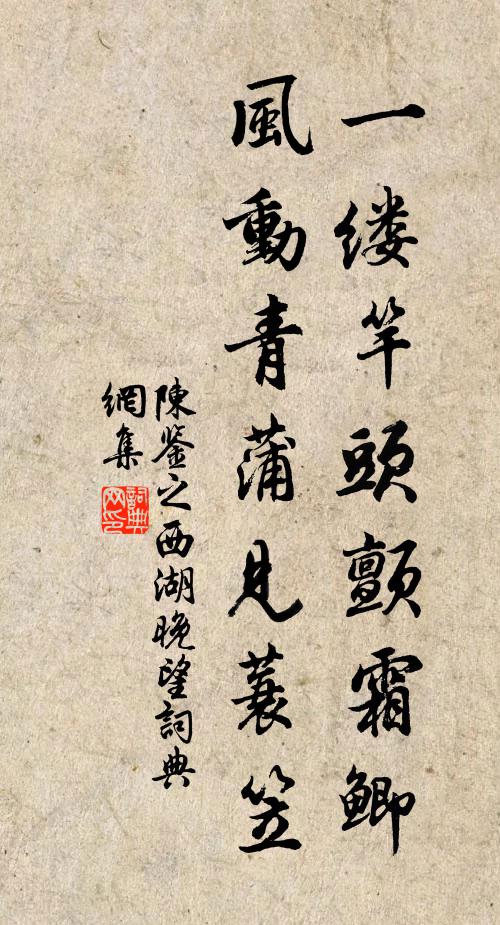 一缕竿頭顫霜鲫
風動青蒲見蓑笠
陳鉴之西湖晚望詞典
網集
詞典
网印